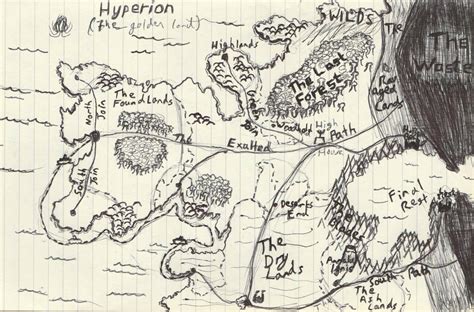 Hyperion
(The golden land)
WILDS
The
Ravaged
Lands
The
Waste
Highlands
The Last
Forest
The
Foundlands
North
Join
South
Join
The
Exalted
Path
High
House
Deserts
End
The
Dry
Lands
The
Blades
Final
Rest
South Path
The Ash
Lands